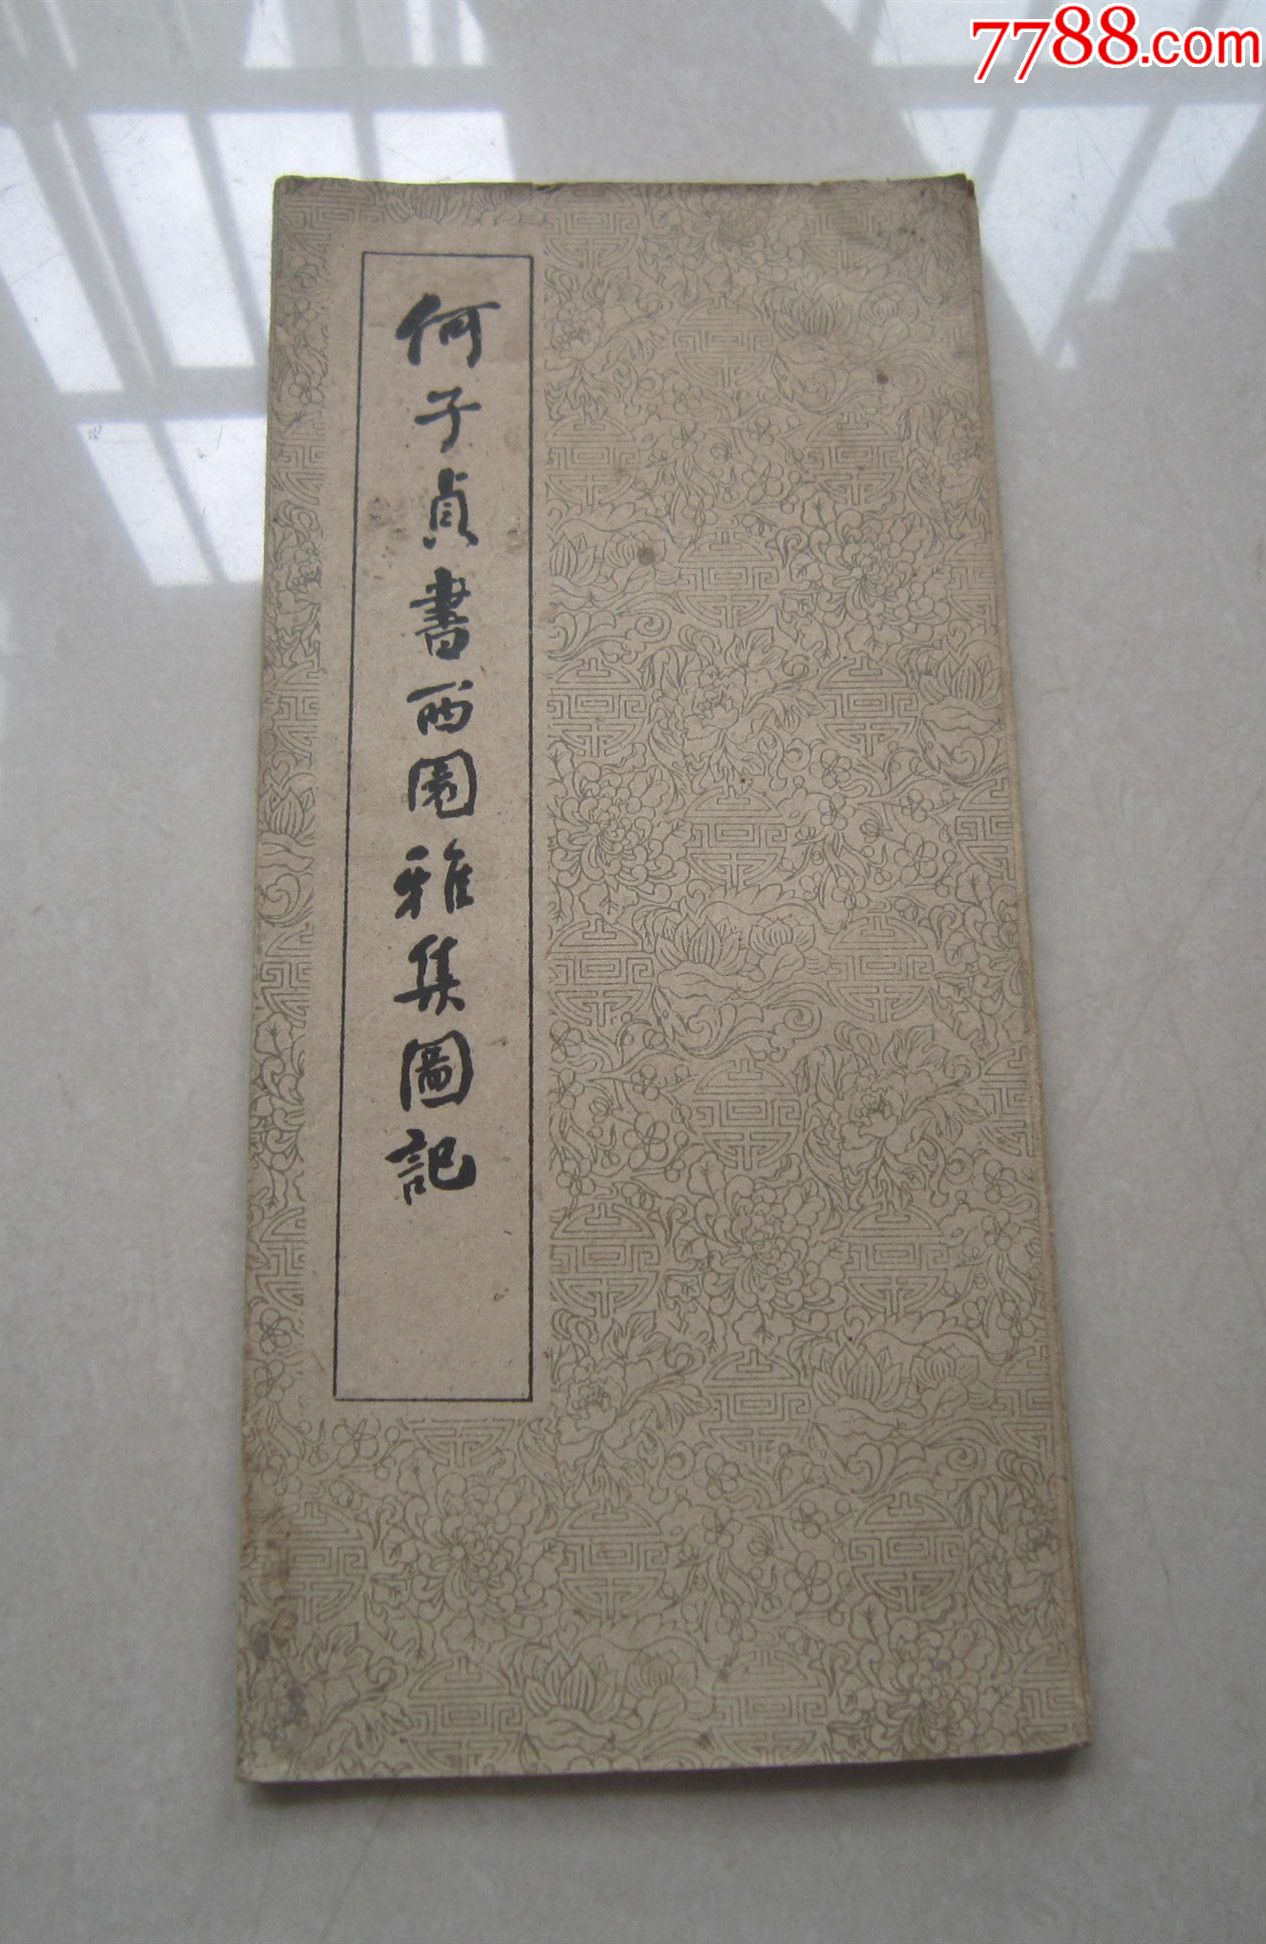 7788.com
何子貞書西園雅集圖記